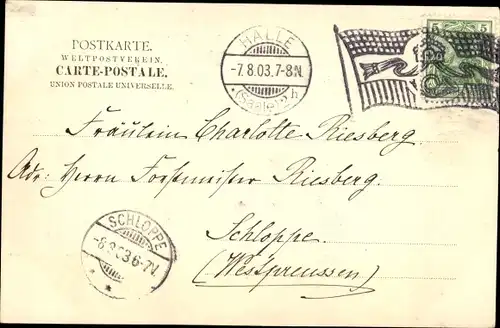 POSTKARTE.
WELTPOSTVEREIN.
CARTE-POSTALE.
UNION POSTALE UNIVERSELLE.
HALLE
-7.8.03.7-8N.
(Saale) 2 h
5 5
Fräulein Charlotte Riesberg
Adr: Herrn Forstmeister Riesberg.
Schloppe
(Westpreussen)
SCHLOPPE
-8.8.03 6-7V.